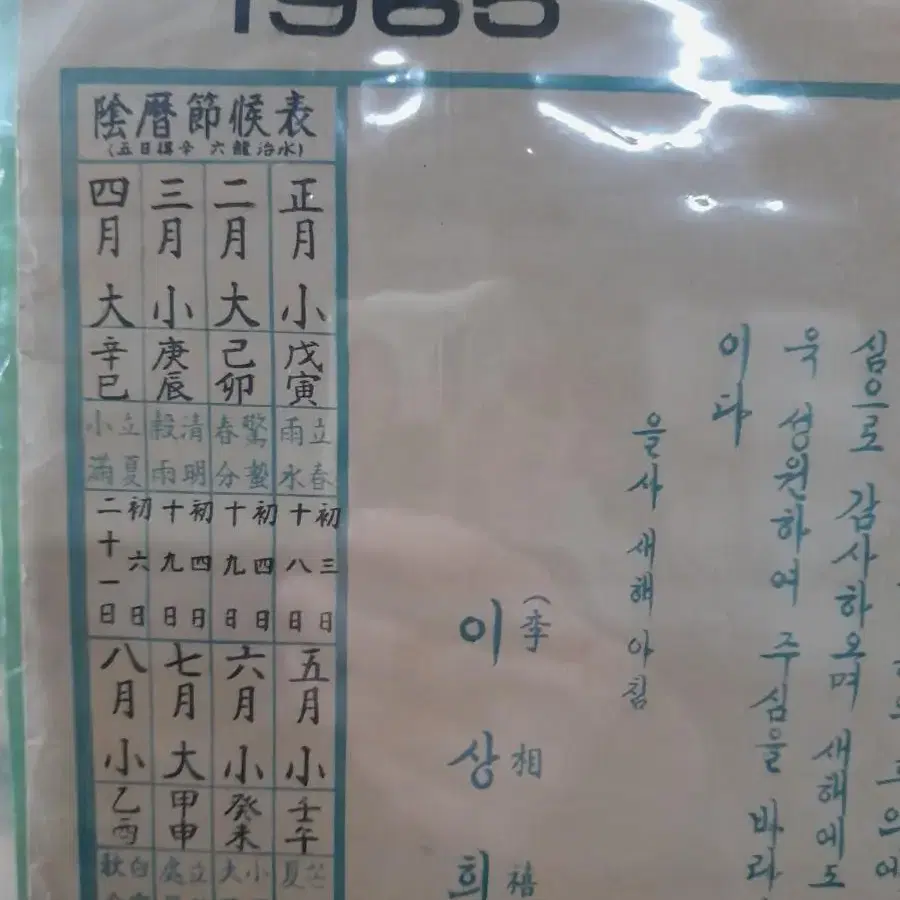 1965
陰曆節候表
(五日得辛 六龍治水)
正月 小 戊寅 立春 雨水 初三日 十八日
二月 大 己卯 驚蟄 春分 初四日 十九日
三月 小 庚辰 清明 穀雨 初四日 十九日
四月 大 辛巳 立夏 小滿 初六日 二十一日
五月 小 壬午
六月 小 癸未 小 大
七月 大 甲申 立 處
八月 小 乙酉 白 秋
심으로 감사하오며 새해에도
욱 성원하여 주심을 바라
이다
을사 새해 아침
이 상 희
(李 相 禧